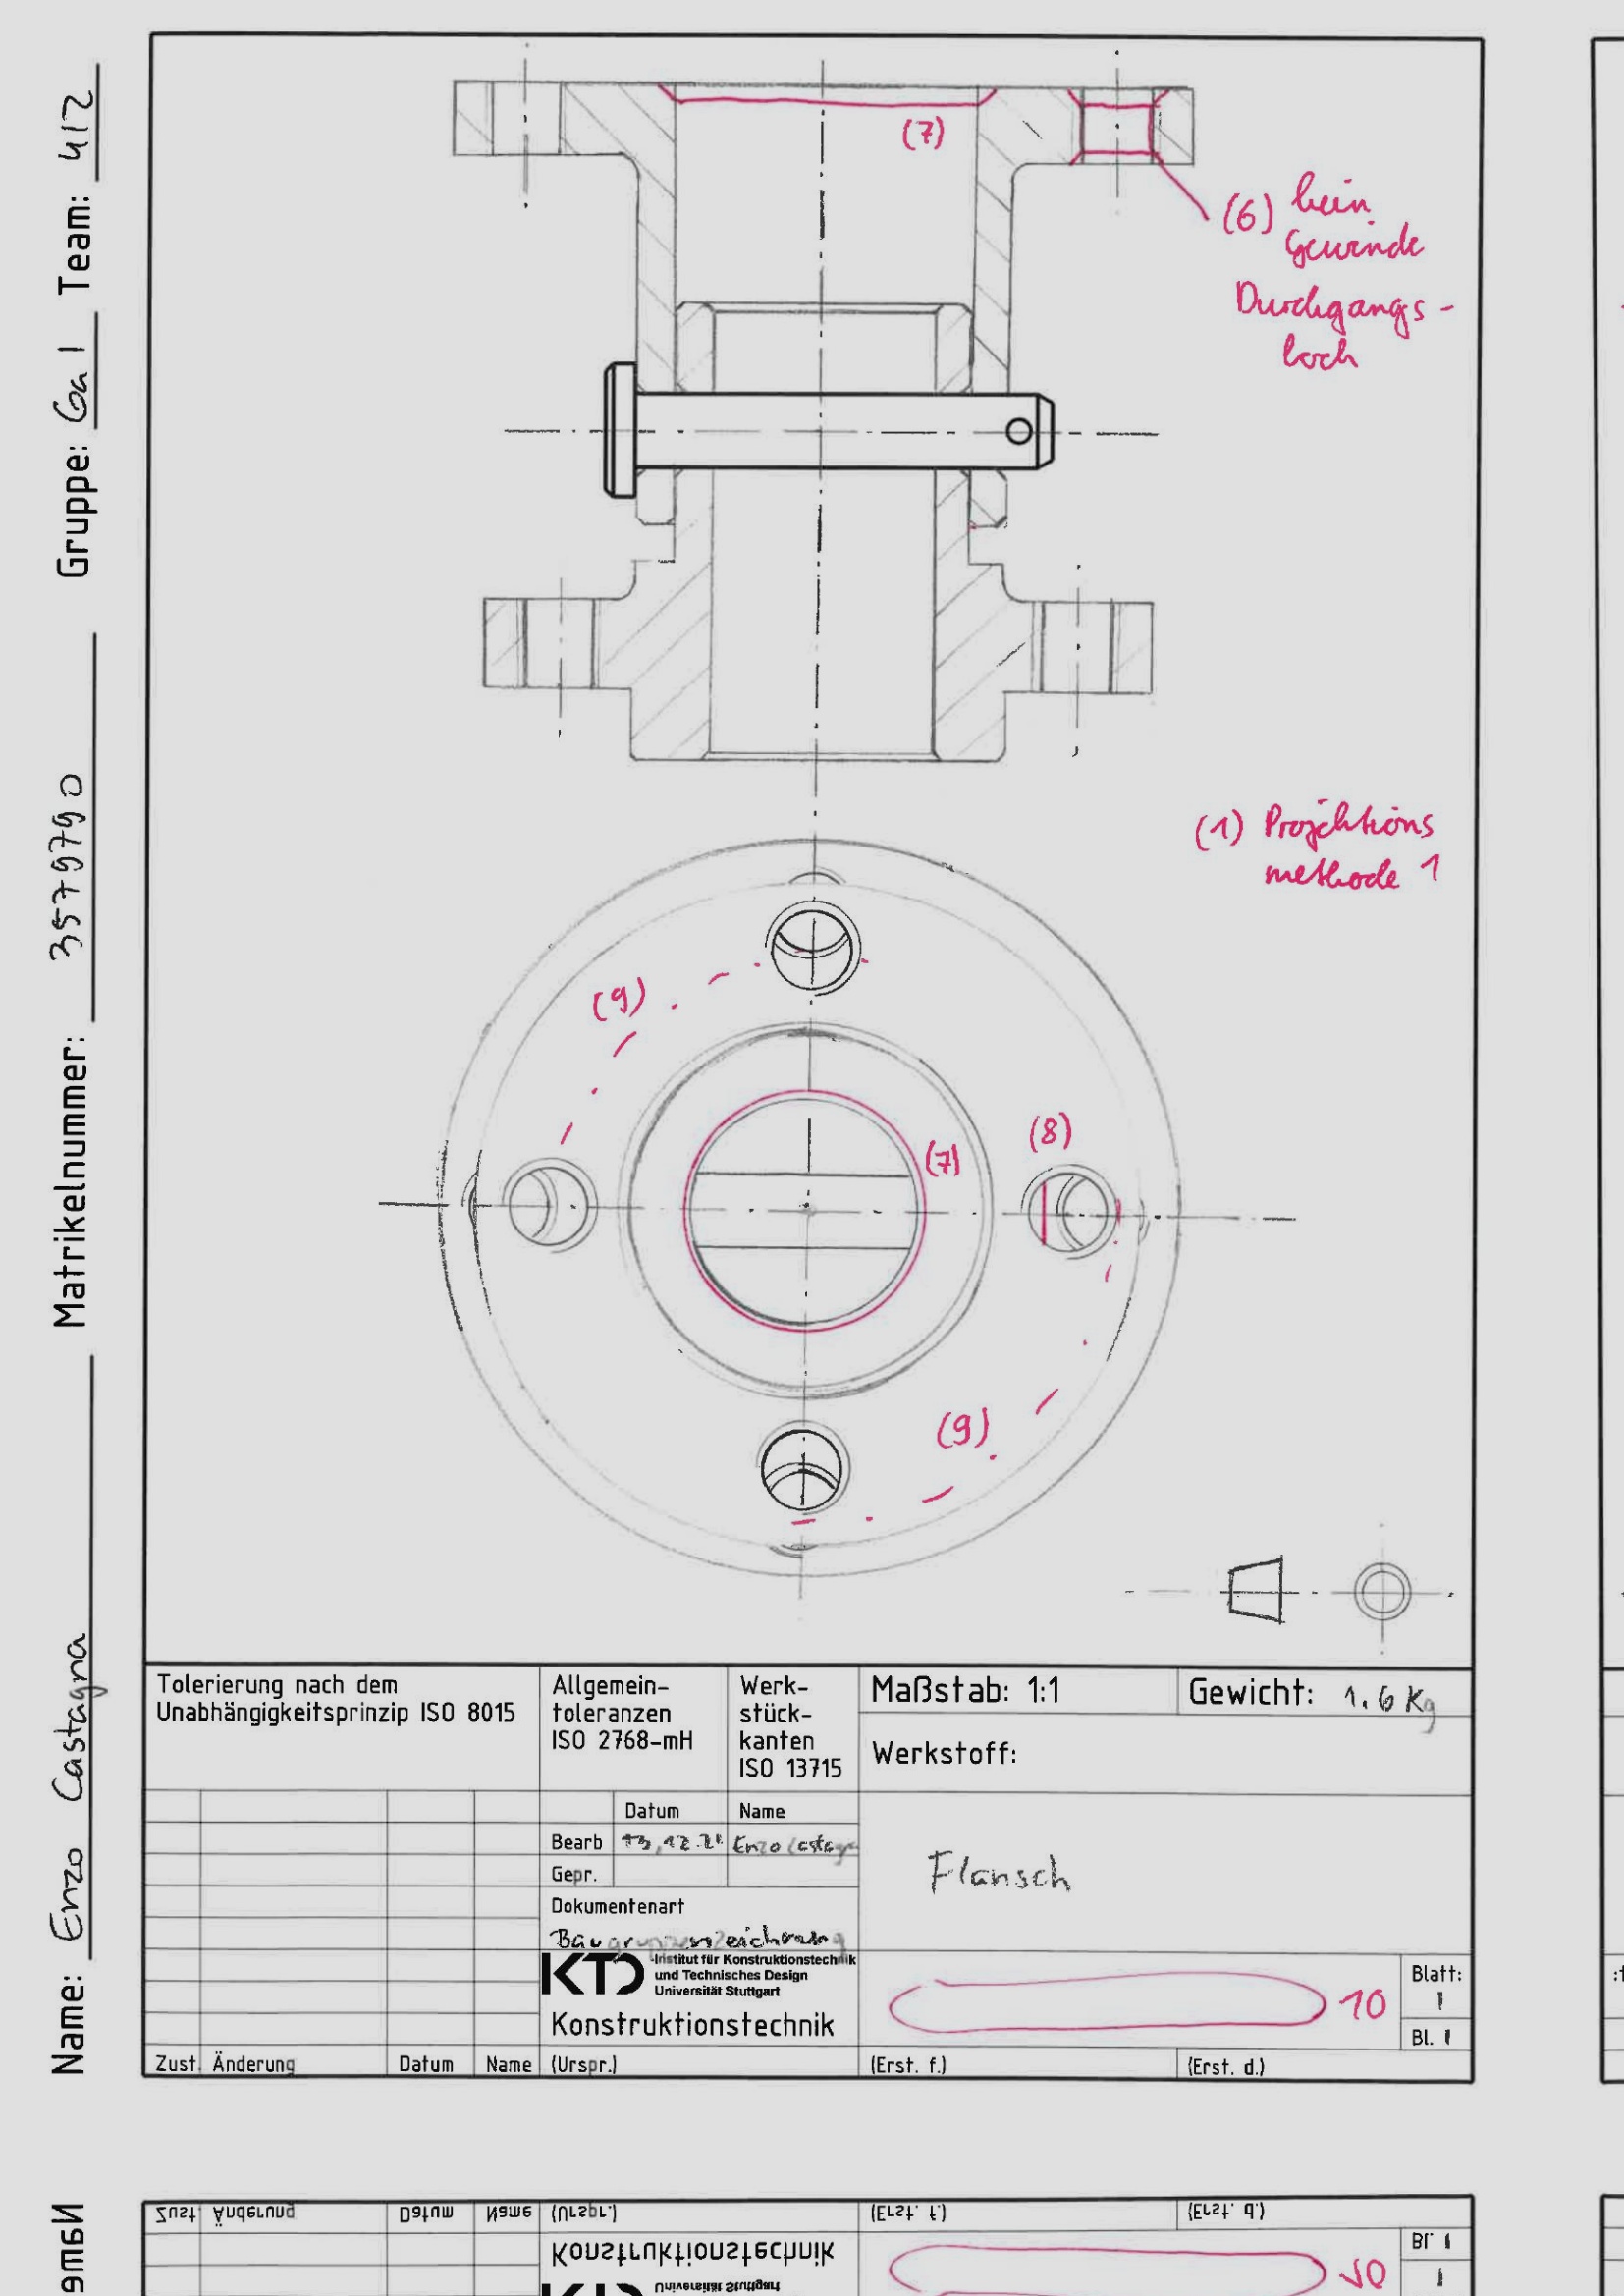 Name: Enzo Castagna Matrikelnummer: 3579790 Gruppe: Ga 1 Team: 412
(7)
(6) kein
Gewinde
Durchgangs-
loch
(1) Projektions
methode 1
(9)
(8)
(7)
(9)
Tolerierung nach dem
Unabhängigkeitsprinzip ISO 8015
Allgemein-
toleranzen
ISO 2768-mH
Werk-
stück-
kanten
ISO 13715
Maßstab: 1:1
Gewicht: 1.6 Kg
Werkstoff:
Datum Name
Bearb 13.12.21 Enzo Castagna
Gepr.
Flansch
Dokumentenart
Baugruppenzeichnung
KTD
Institut für Konstruktionstechnik
und Technisches Design
Universität Stuttgart
Konstruktionstechnik
10
Blatt:
1
Bl. 1
Zust. Änderung Datum Name (Urspr.) (Erst. f.) (Erst. d.)
Zust. Änderung Datum Name (Urspr.) (Erst. f.) (Erst. d.)
Bl. 1
Konstruktionstechnik
10
1
KTD
Universität Stuttgart
Name